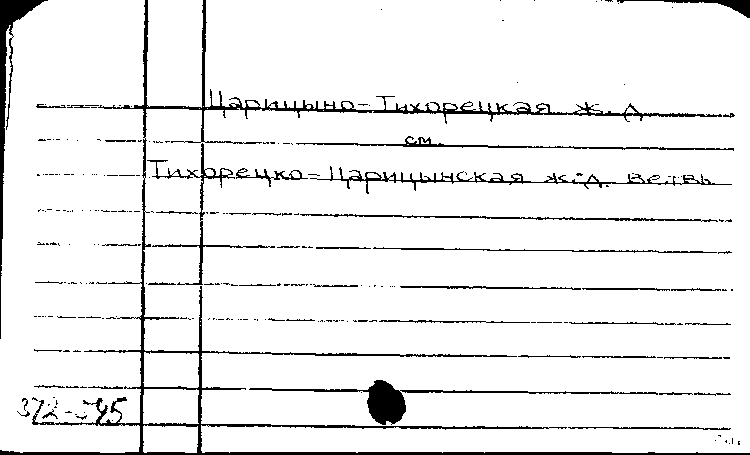 Царицыно-Тихорецкая ж. д
см.
Тихорецко-Царицынская ж.д. ветвь
372-545